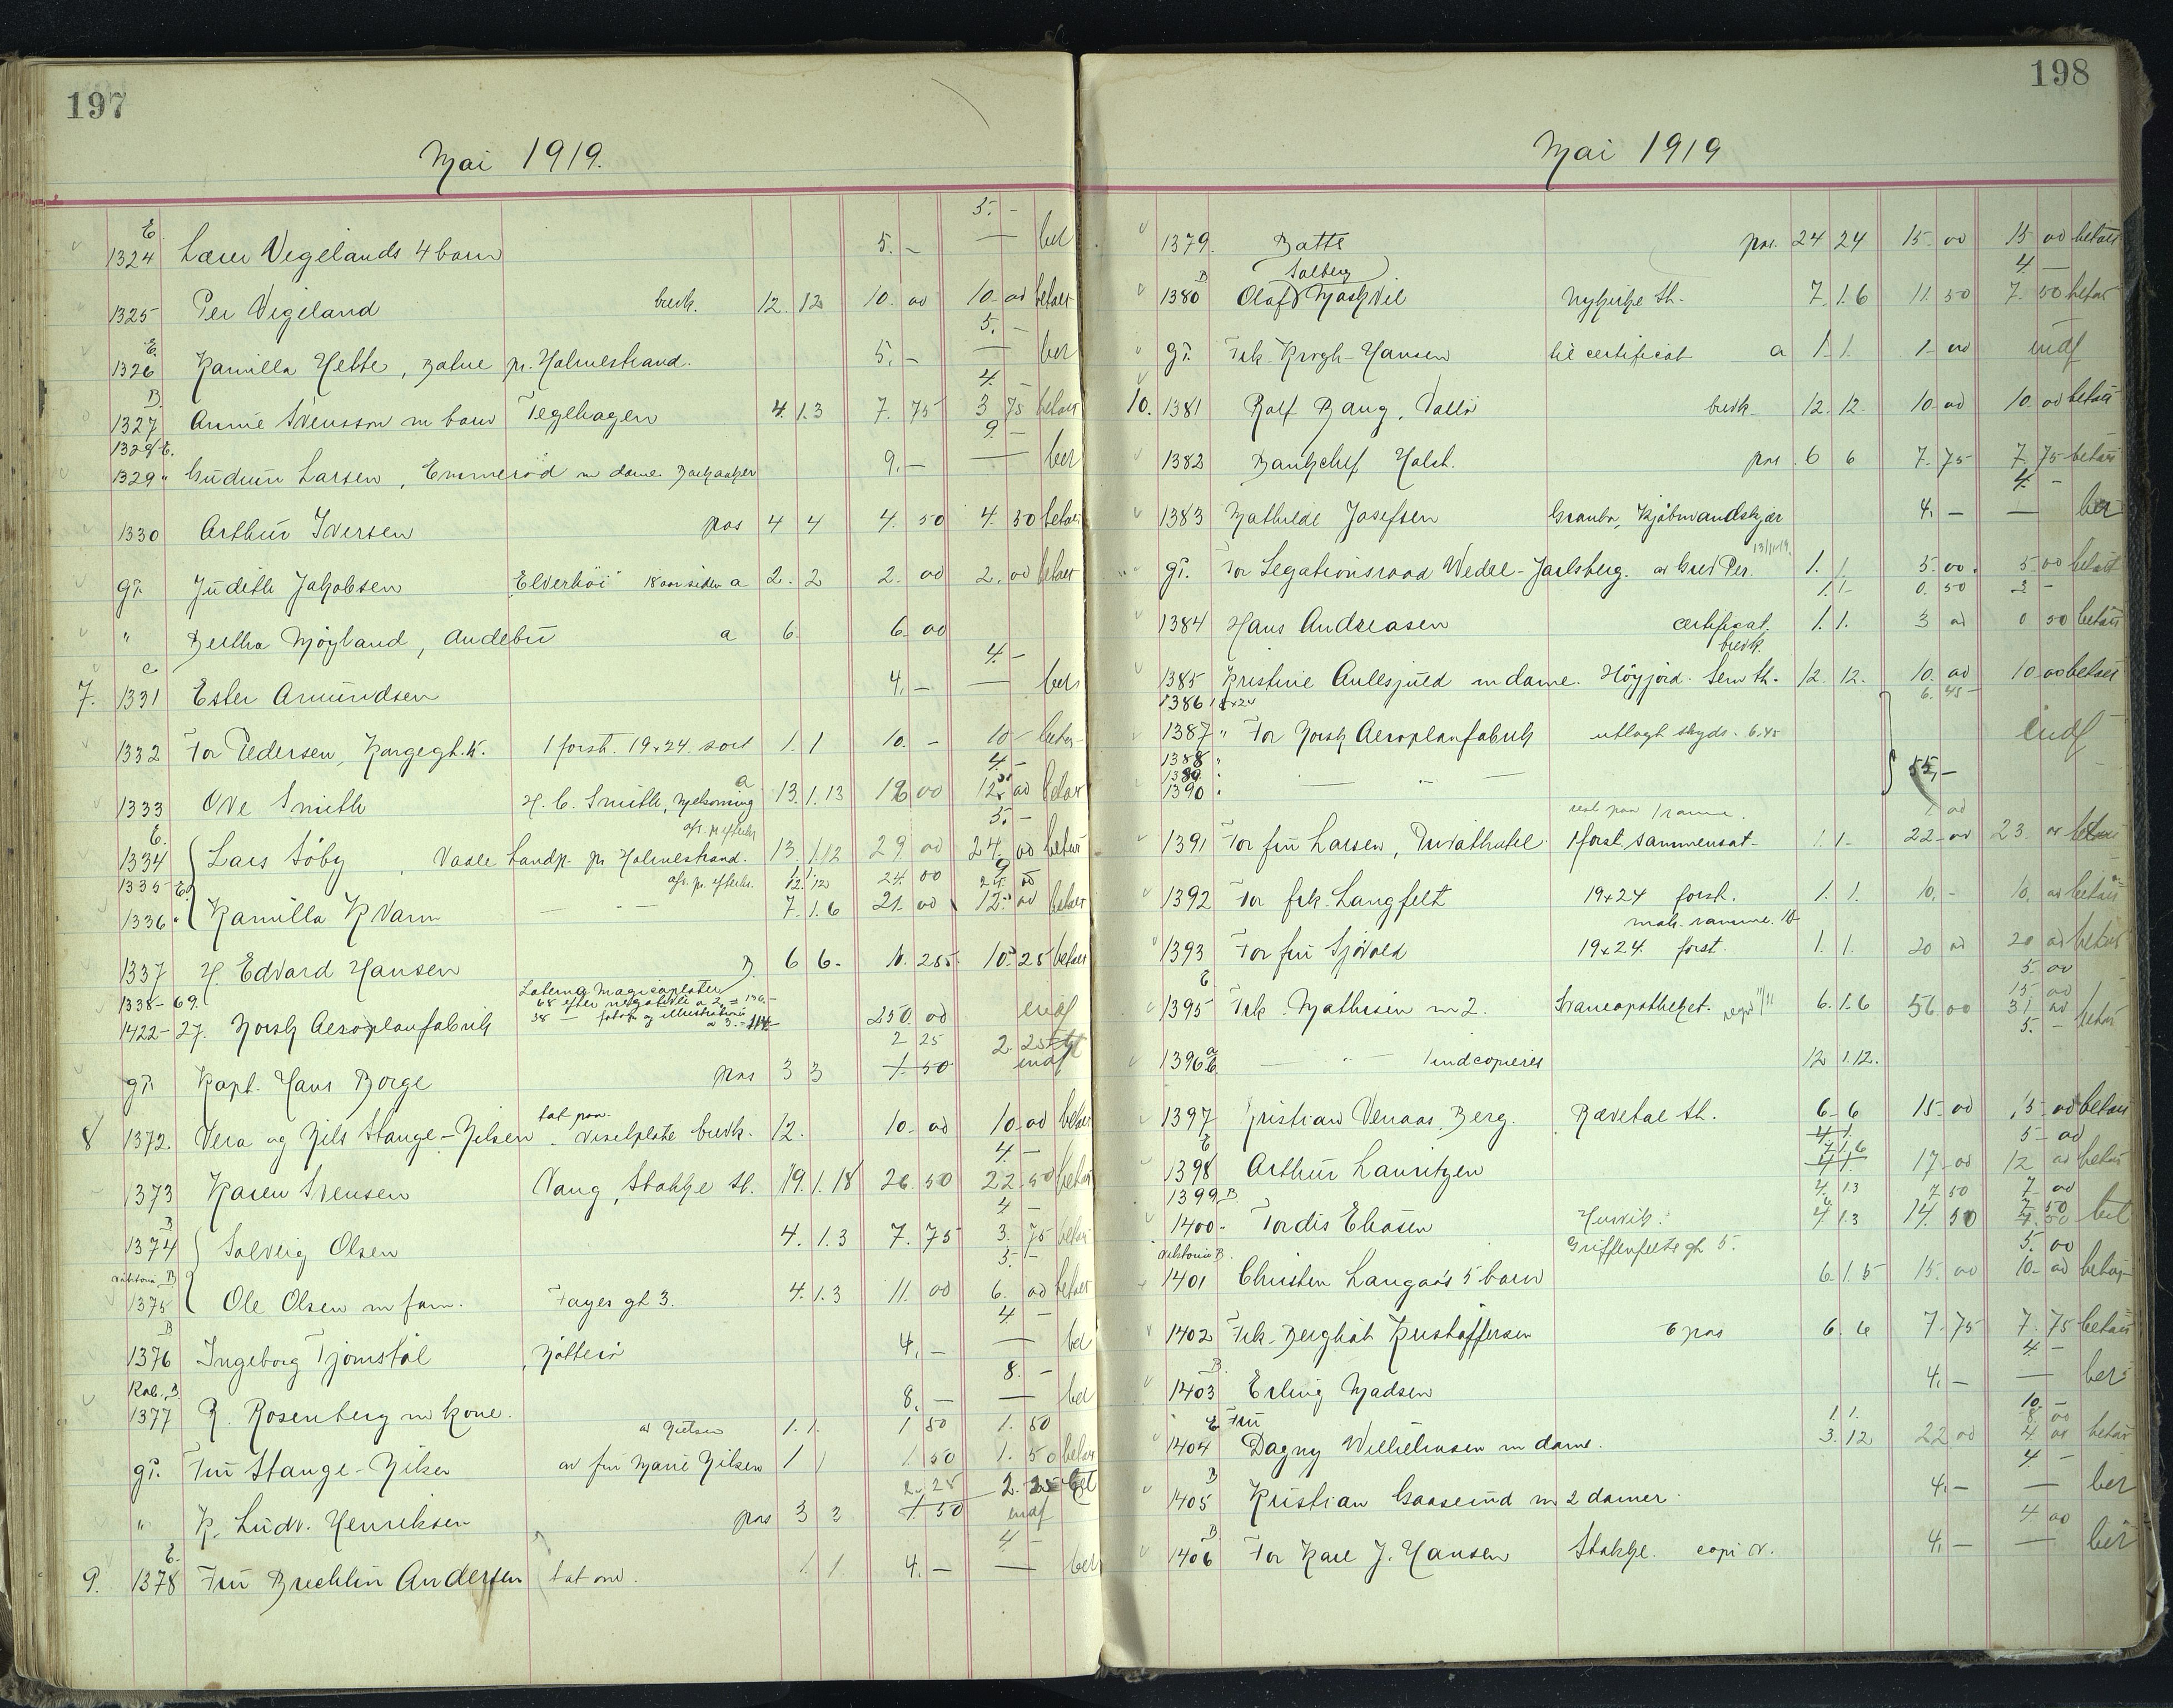 197
Mai 1919.
E.
5. -
1324 Lærer Vegelands 4 barn 5. - — bet
1325 Per Vegeland brevk. 12. 12 10. 00 10. 00 betalt
E. 5. -
1326 Kamilla Hette, pr. Holmestrand. 5. - —
B. 4. -
1327 Annie Svensson m barn Tegelhagen 4. 1.3 7. 75 3 75 betalt
1328 E. 9. -
1329 " Gudrun Larsen, Emmerød m dame. 9. - —
1330 Arthur Iversen pas 4 4 4. 50 4. 50 betalt
gt. Judith Jakobsen "Elverhöi" 18 aar siden a 2. 2 2. 00 2. 00 betalt
" Bertha Möyland, Andebu a 6. 6. 00
4. -
7. 1331 Ester Amundsen 4. - —
1332 For Pedersen, 1 forst. 19x24 sort 1. 1 10. - 10 -
4. -
1333 Ove Smith H. C. Smith, a 13. 1. 13 16 00 12 00 betalt
E. 5. -
1334 Lars Söby, Vaale Landp. pr Holmestrand. 13. 1.12 29 00 24. 00 betalt
1335 E. 12. 12 24. 00
1336 " Kamilla Kvarn — " — 7. 1. 6 21. 00 12. 00 betalt
1337 H. Edvard Hansen B. 6 6. 10. 25 betalt
1338-69. Laterna Magicaplater
68 efter negativer a 2. = 136.-
1422-27. Norsk Aeroplanfabrik 38 — fotogr. og illustrationer a 3. = 250. 00 indf
2 25 2. 25
gt. Kapt. Hans Borge pas 3 3 1. 50 indf
tat paa
8 1372. Vera og Nils Stange-Nilsen. brevk. 12. 10. 00 10. 00 betalt
4. -
1373 Karen Svensen Vang, Stokke st. 19. 1. 18 26. 50 22. 50 betalt
B 4 -
1374 Solveig Olsen 4. 1. 3 7. 75 3. 75 betalt
Viktoria B 5. -
1375 Ole Olsen m fam. Fayes gt 3. 4. 1. 3 11. 00 6. 00 betalt
B 4 -
1376 Ingeborg Tjomstöl, Nötterö 4. - — bet
Kab. B. 8. -
1377 R. Rosenberg m kone. 8. - — bet
1. 1. 1 50 1. 50
gt. Fru Stange-Nilsen av fru Marie Nilsen 1 1 1. 50 1. 50 betalt
2. 25 2. 25 bet
" K. Ludv. Henriksen pas 3 3 1. 50 indf
E. 4 -
9. 1378 Fru Brechlin Andersen tat ond. 1 1 4. - —
198
Mai 1919
1379. Batte pas. 24 24 15. 00 15. 00 betalt
B Solberg 4. -
1380 Olaf Nykirke St. 7. 1. 6 11. 50 7. 50 betalt
gt. Frk. Krogh-Hansen til certificat a 1. 1. 1. 00 indf
10. 1381 Rolf Bang, Vallö brevk. 12. 12. 10. 00 10. 00 betalt
1382 Bankchef Holst. pas 6 6 7. 75 7. 75 betalt
4. -
1383 Mathilde Josefsen Granbo, Kjöbmandskjær 4. - —
gt. For Legationsraad Wedel-Jarlsberg. 1. 1. 5. 00. 5 00 betalt
1. 1- 0. 50
1384 Hans Andreasen certificat. 1. 1. 3 00 0 50 betalt
brevk.
1385 Kristine Aulesjord m dame. Höyjord. Sem St. 12. 12. 10. 00 10. 00 betalt
1386 18x24 6. 45
1387 " For Norsk Aeroplanfabrik utlagt skyds. 6.45 indf
1388 "
1389 " — " — 55. -
1390 "
1. 00
1391 For fru Larsen, Privathotel 1 forst. sammensat- 1. 1- 22. 00 23. 00 betalt
1392 For frk. Langfelt 19x24 forst. 1. 1. 10. - 10. 00 betalt
mah. ramme. 10
1393 For fru Sjövold 19x24 forst. 1. 1. 20 00 20 00 betalt
E 5. 00
15 00
1395 Frk. Mathisen m 2. Svaneapotheket. 6. 1. 6 56. 00 31 00
5. - betalt
1396 a b — " — 1 indcopieres 12 1. 12.
1397 Kristian Venaas Berg. Rævetal St. 6. 6 15. 00 15. 00 betalt
E 5 - 00
1398 Arthur Lauritzen 7. 1. 6 17. 00 12 00 betalt
1399 B. 4. 1.3 7 50 7. 00
1400 " Tordis Eliasen Husvik. 4 1.3 14. 50 7. 50 bet
Viktoria B. Griffenfeldts gt 5. 5. 00
1401 Christen Langaas 5 barn 6. 1. 5 15. 00 10. 00 betalt
1402 Frk. Bergliot Kristoffersen 6 pas 6. 6 7. 75 7. 75 betalt
B. 4. -
1403 Erling Madsen 4. - —
E Fru 1. 1. 10. -
8. 00
1404 Dagny Wilhelmsen m dame. 3. 12 22 00 4 00 betalt
B 4 -
1405 Kristian Gaaserud m 2 damer. 4. - —
B. 4. 00
1406 For Kare J. Hansen Stokke. copi 4. - —